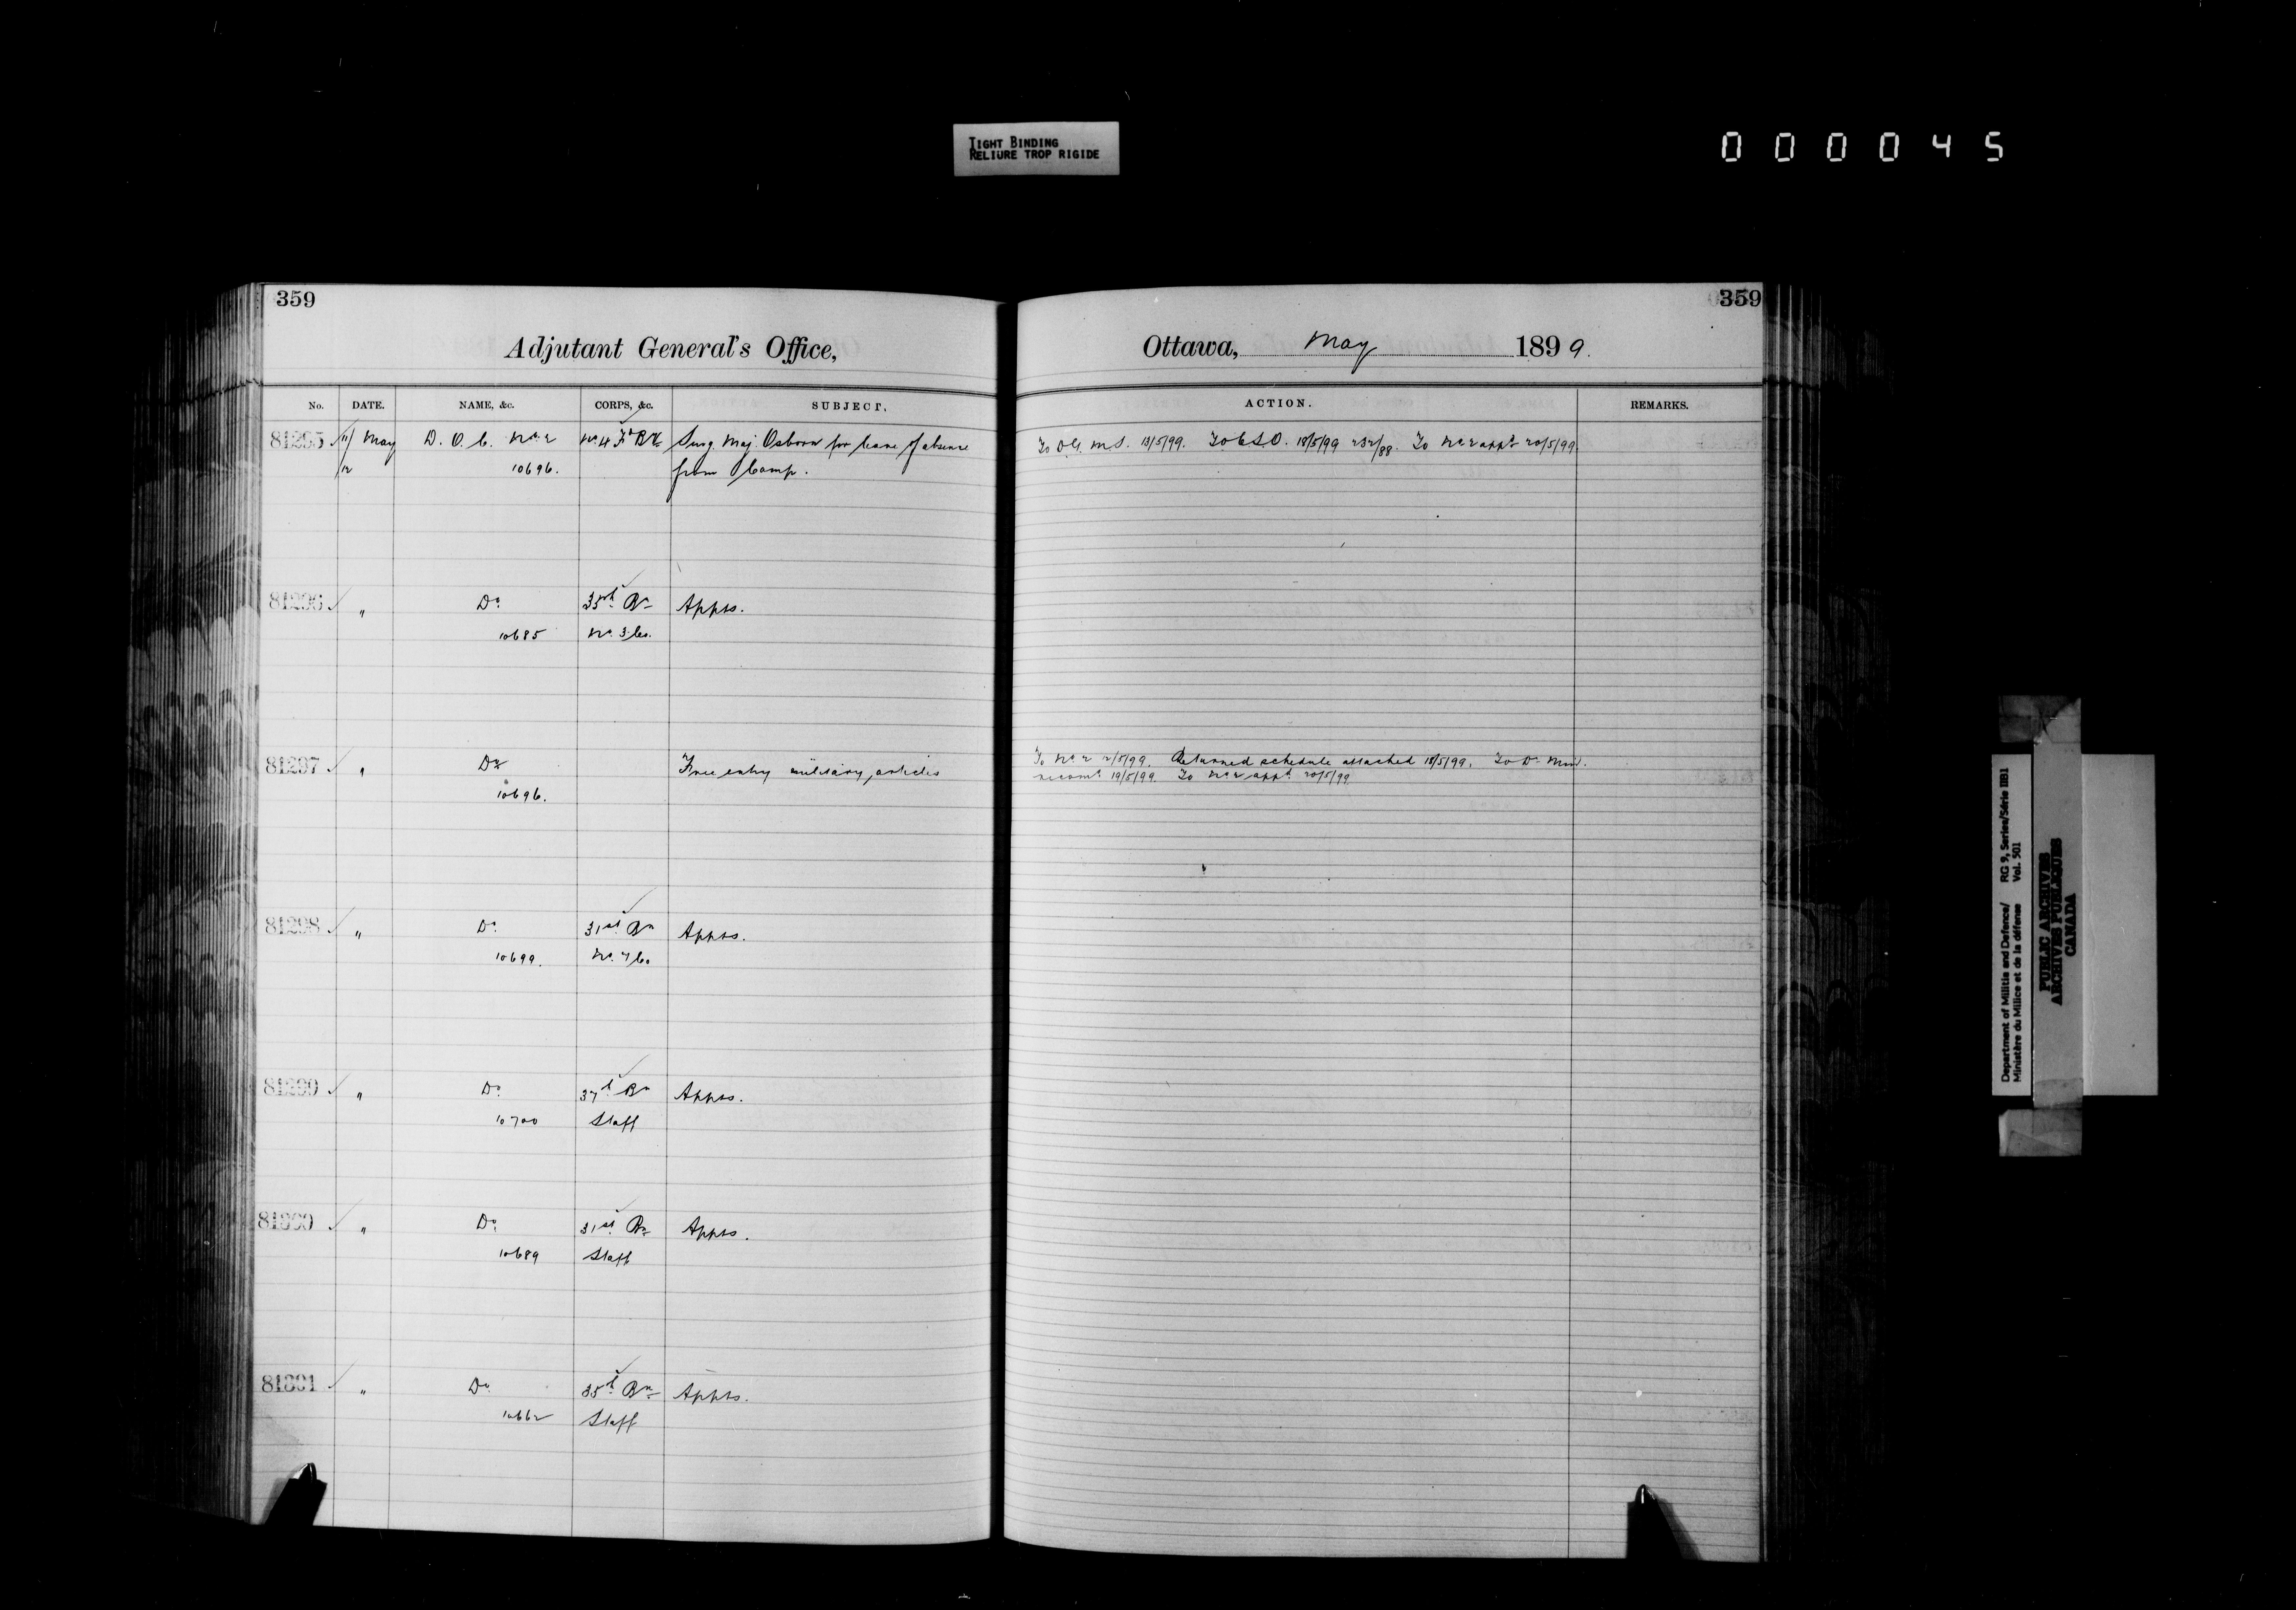 TIGHT BINDING
RELIURE TROP RIGIDE
000045
359
359
Adjutant General's Office,
Ottawa, May 1899.
No. DATE. NAME, &c. CORPS, &c. SUBJECT. ACTION. REMARKS.
81295 11/ May D. O. C. No. 2 No. 4 Fd By Surg. Maj. Osborn for leave of absence To D.G.M.S. 13/5/99. To C.S.O. 18/5/99 232/88. To No 2 appd 20/5/99.
12 10696. from Camp.
81296 " Do 35th Bn Appts.
10685 No. 3 Co.
81297 " Do Free entry military articles To No 2 2/5/99. Returned schedule attached 18/5/99. To D. Min.
10696. 19/5/99. To No 2 appd 20/5/99
81298 " Do 31st Bn Appts.
10699. No. 7 Co
81299 " Do 37th Bn Appts.
10700 Staff
81300 " Do 31st Bn Appts.
10689 Staff
81301 " Do 35th Bn Appts.
10662 Staff
Department of Militia and Defence/ RG 9, Series/Série IIB1
Ministère du Milice et de la défense Vol. 501
PUBLIC ARCHIVES
ARCHIVES PUBLIQUES
CANADA